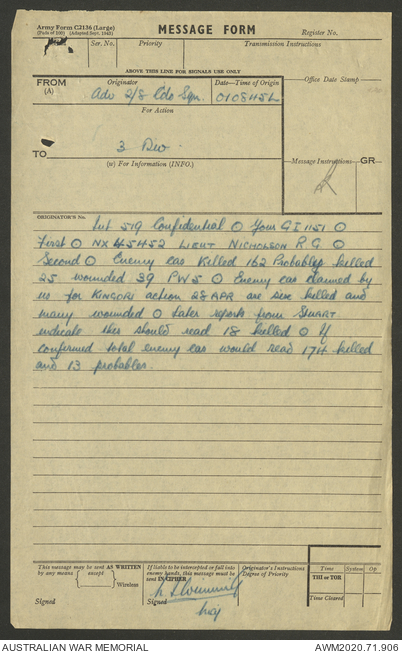 Army Form C2136 (Large)
(Pads of 100) (Adapted Sept. 1942)
MESSAGE FORM
Register No.
Call
Ser. No.
Priority
Transmission Instructions
ABOVE THIS LINE FOR SIGNALS USE ONLY
FROM
(A)
Originator
Date-Time of Origin
Office Date Stamp
Adv 2/8 Cdo Sqn.
010845L
For Action
3 Div.
TO
(w) For Information (INFO.)
Message Instructions
GR
ORIGINATOR'S No.
Int 519 Confidential O Your GI 1151 O
First O NX 45452 LIEUT NICHOLSON R G O
Second O Enemy cas killed 162 Probables killed
25 wounded 39 PWS O Enemy cas claimed by
us for KINGORI action 28 APR are six killed and
many wounded O Later reports from STUART
indicate this should read 18 killed O If
confirmed total enemy cas would read 174 killed
and 13 probables.
This message may be sent AS WRITTEN
by any means
except
Wireless
Signed
If liable to be intercepted or fall into
enemy hands, this message must be
sent IN CIPHER
Signed
Maj
Originator's Instructions
Degree of Priority
Time
System
Op
THI or TOR
Time Cleared
AUSTRALIAN WAR MEMORIAL
AWM2020.71.906